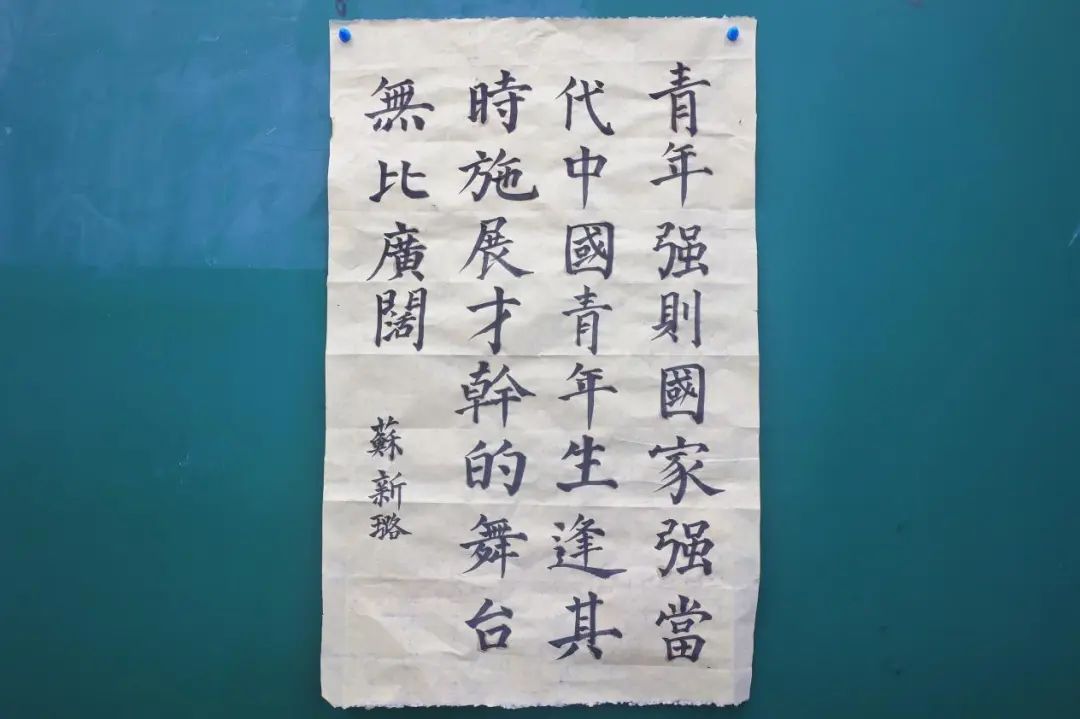 青年强則國家强當
代中國青年生逢其
時施展才幹的舞台
無比廣闊
蘇新璐